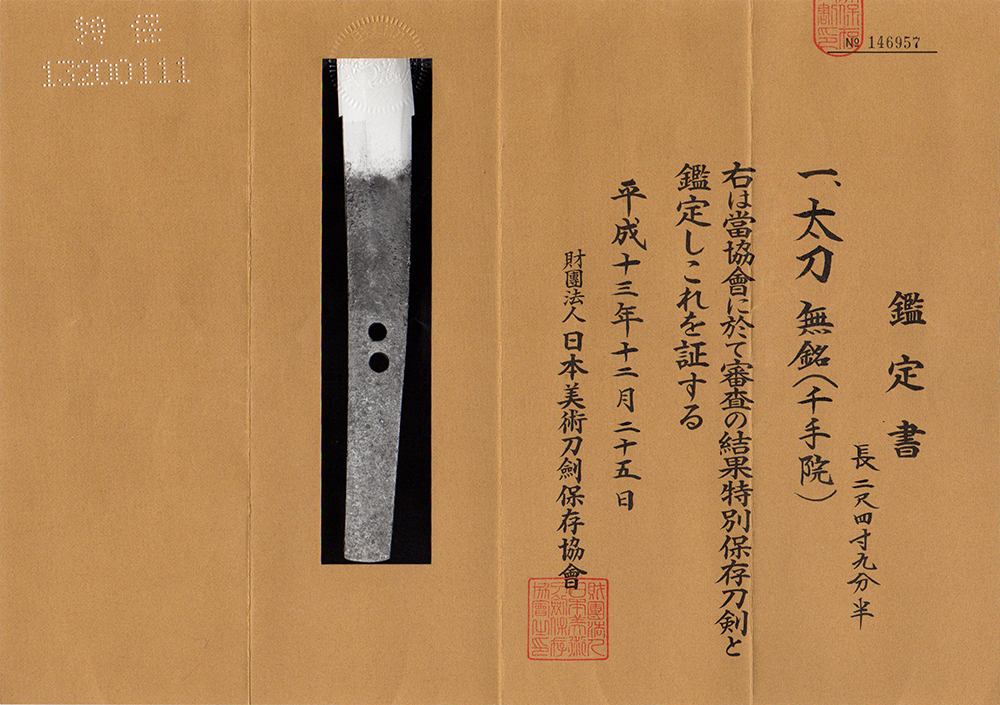 鑑定書
一、太刀 無銘(千手院)
長二尺四寸九分半
右は當協會に於て審査の結果特別保存刀剣と
鑑定しこれを証する
平成十三年十二月二十五日
財團法人 日本美術刀劍保存協會
№ 146957
特保
13200111